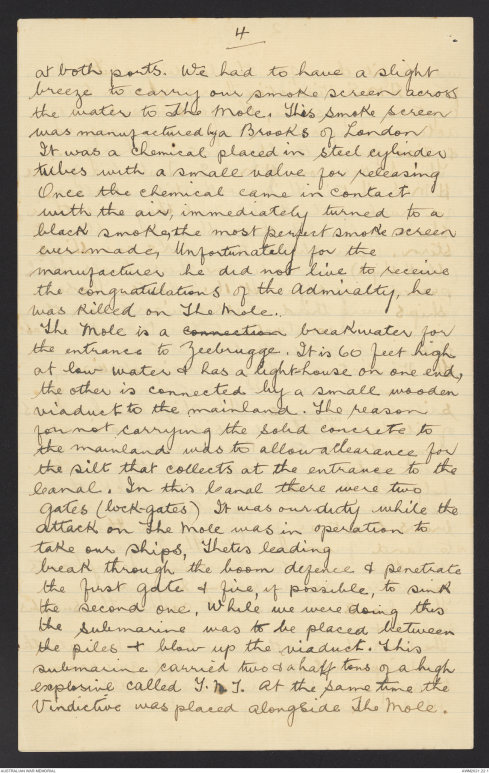 4
at both ports. We had to have a slight
breeze to carry our smoke screen across
the water to The Mole. This smoke screen
was manufactured by a Brooks of London
It was a chemical placed in steel cylinder
tubes with a small valve for releasing
Once the chemical came in contact
with the air, immediately turned to a
black smoke, the most perfect smoke screen
ever made, Unfortunately for the
manufacturer he did not live to receive
the congratulations of the Admiralty, he
was killed on The Mole.
The Mole is a connection breakwater for
the entrance to Zeebrugge. It is 60 feet high
at low water & has a light-house on one end,
the other is connected by a small wooden
viaduct to the mainland. The reason
for not carrying the solid concrete to
the mainland was to allow a clearance for
the silt that collects at the entrance to the
Canal. In this Canal there were two
gates (lock-gates) It was our duty while the
attack on The Mole was in operation to
take our ships, Thetis leading
break through the boom defence & penetrate
the first gate & fire, if possible, to sink
the second one, While we were doing this
the Submarine was to be placed between
the piles & blow up the viaduct. This
submarine carried two & a half tons of a high
explosive called T.N.T. At the same time the
Vindictive was placed alongside The Mole.
AUSTRALIAN WAR MEMORIAL